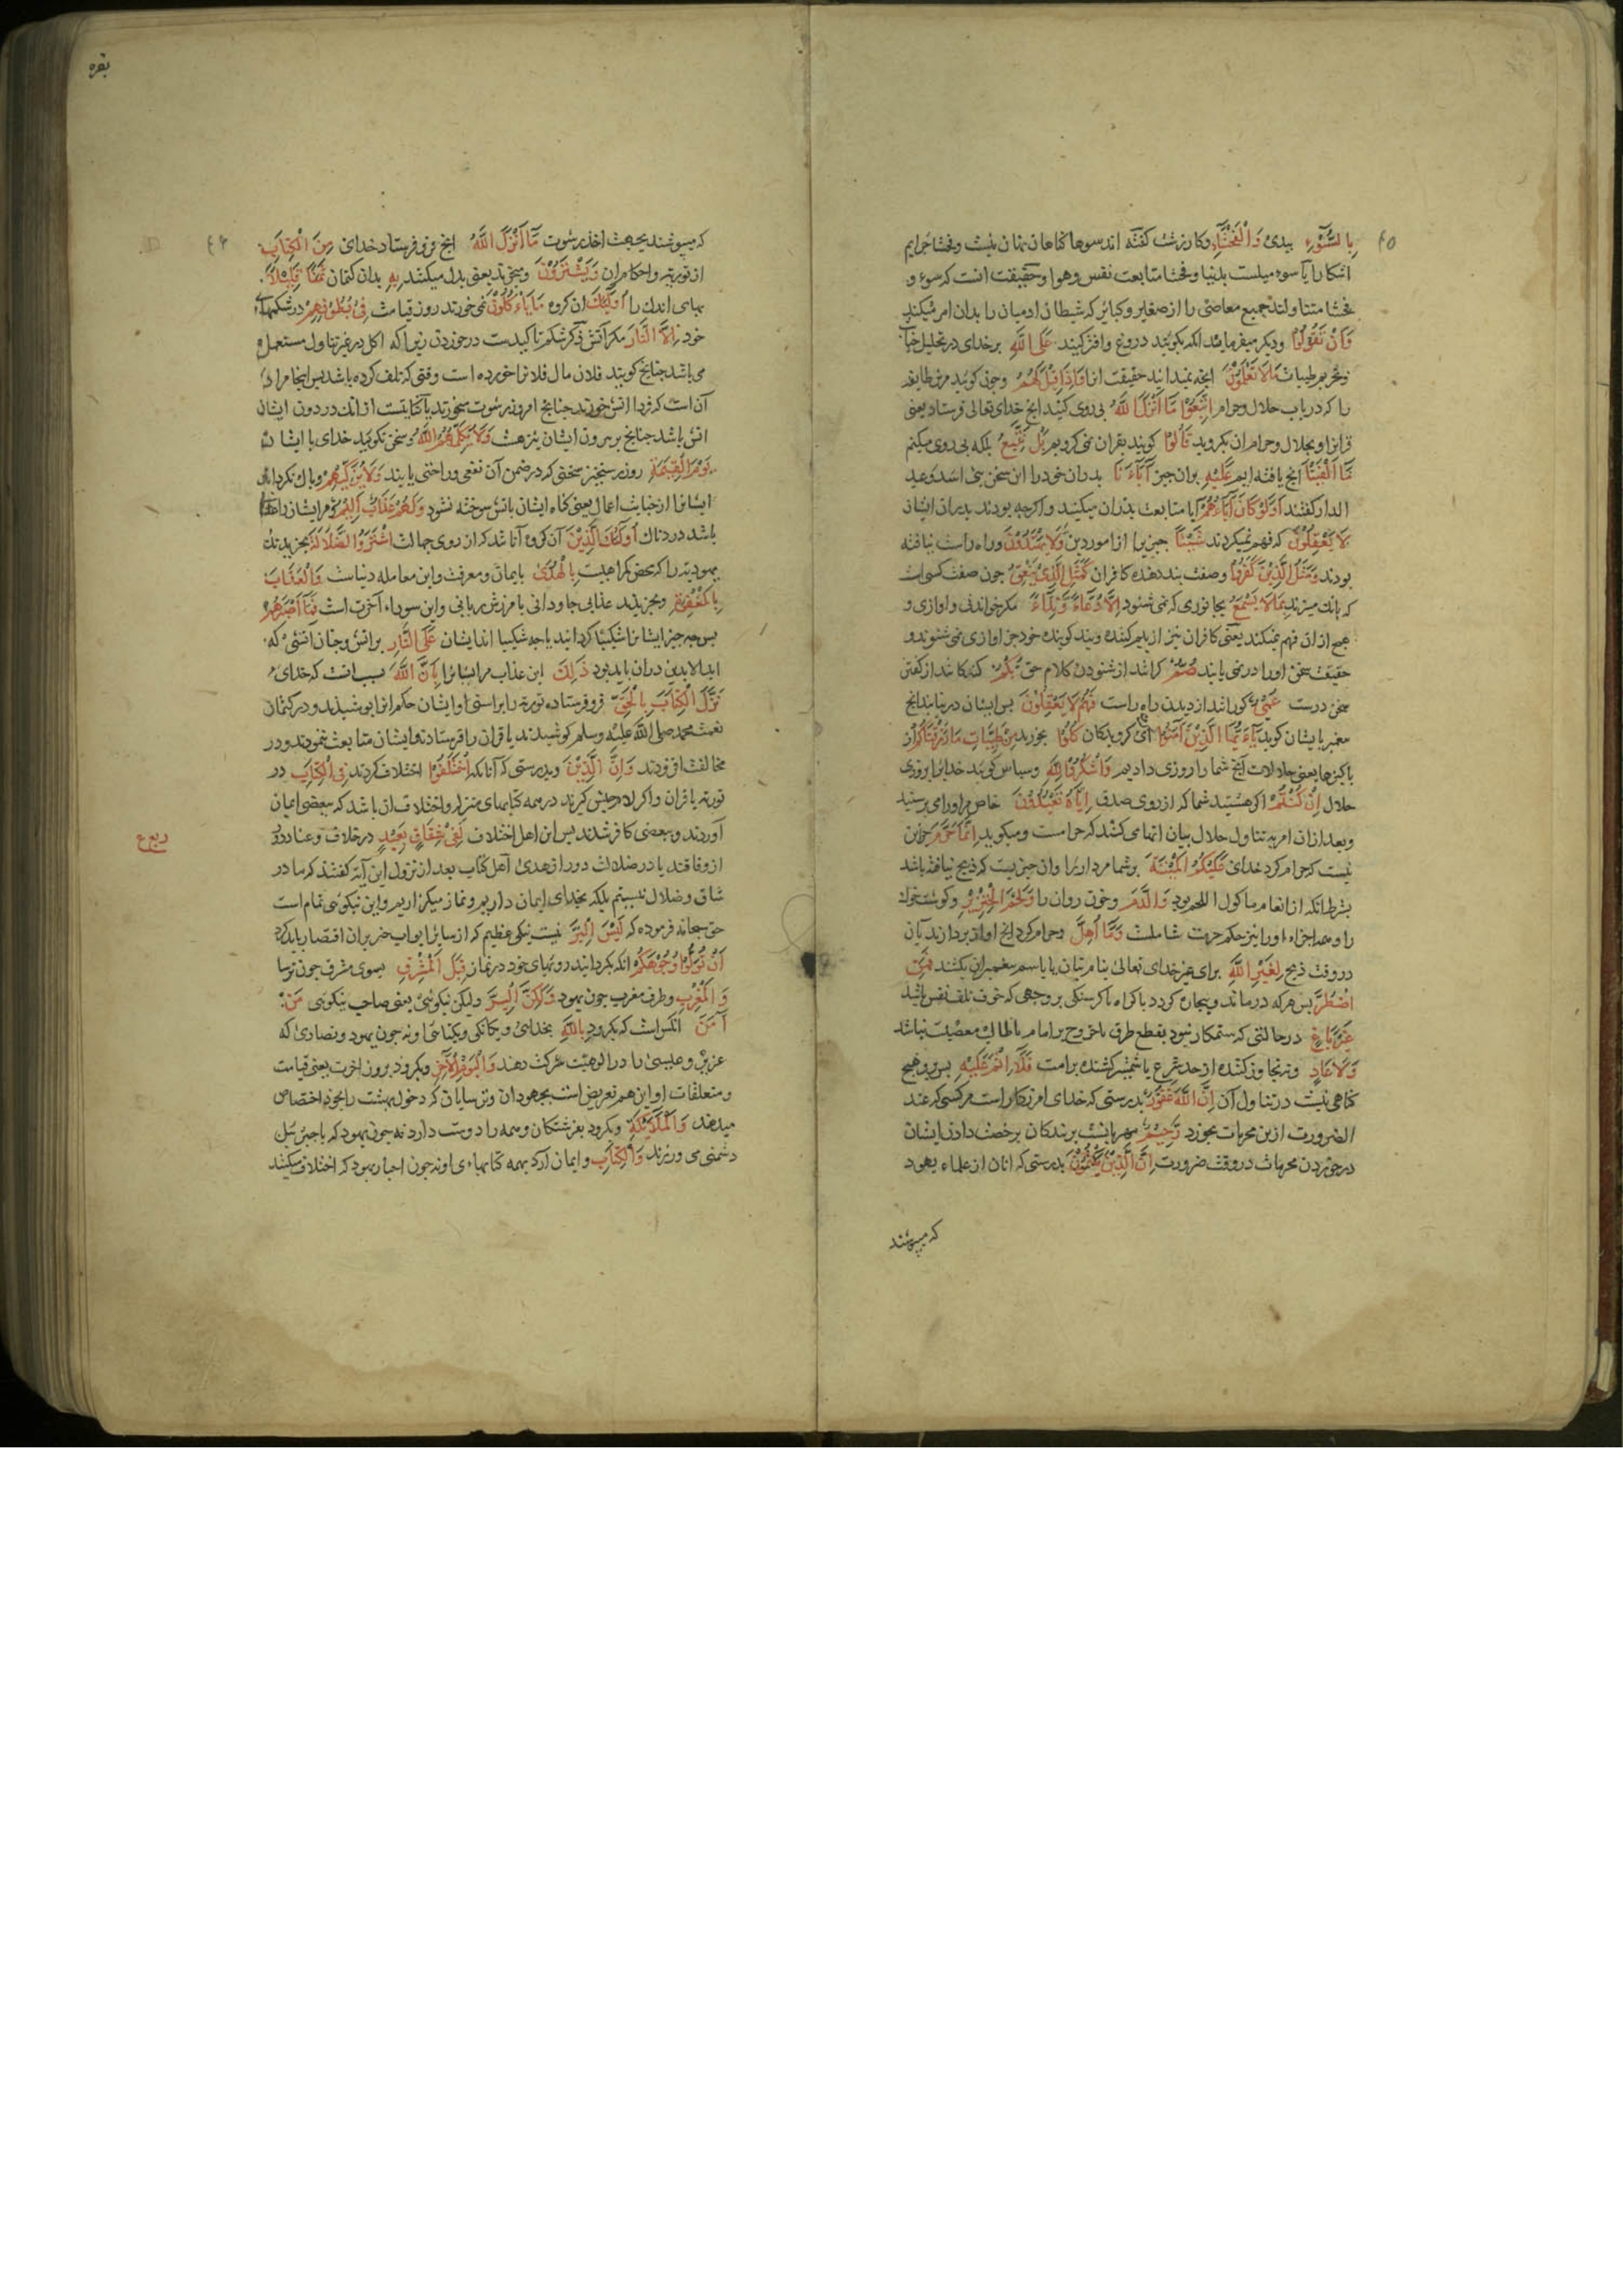 ٤٥
بِالسُّوْءِ ببدی وَالْفَحْشَآءِ وکار زشت گفته اند سوءها گناهان نهان نیست و فحشا جرایم
اشکارا یا سوء میلست بدنیا و فحشا متابعت نفس و هوا و حقیقت انست که سوء و
فحشا متناولند جمیع معاصی را از صغایر و کبایر که شیطان ادمیان را بدان امر میکند
وَاَنْ تَقُوْلُوْا و دیکر میفرماید انکه بکویید دروغ و افترا کنید عَلَى اللّٰهِ بر خدای در تحلیل
و تحریم طیبات مَا لَا تَعْلَمُوْنَ انچه نمیدانید حقیقت انرا وَاِذَا قِيْلَ لَهُمُ و چون کویند مر طایفه
را که در باب حلال و حرام اتَّبِعُوْا مَآ اَنْزَلَ اللّٰهُ پی روی کنید انچ خدای تعالی فرستاد یعنی
قران او بحلال و حرام ان بکروید قَالُوْا کویند بقران نمی کرویم بَلْ نَتَّبِعُ بلکه پی روی میکنم
مَآ اَلْفَيْنَا انچ یافته ایم عَلَيْهِ بران چیز اٰبَآءَنَا پدران خود را این سخن بنی اسد و عبد
الدار کفتند اَوَلَوْ كَانَ اٰبَآؤُهُمْ ایا متابعت پدران میکنید و اکرچه بودند پدران ایشان
لَا يَعْقِلُوْنَ که فهم نمیکردند شَيْئًا چیزی را از امور دین وَلَا يَهْتَدُوْنَ و راه راست نیافته
بودند وَمَثَلُ الَّذِيْنَ كَفَرُوْا و صفت پند دهنده کافران كَمَثَلِ الَّذِيْ يَنْعِقُ چون صفت کسی است
که بانک میزند بِمَا لَا يَسْمَعُ بجانوری که نمی شنود اِلَّا دُعَآءً وَّنِدَآءً مکر خواندنی و اوازی و
هیچ از ان فهم نمیکند یعنی کافران نیز از بیم کننده و پند کوینده خود جز اوازی نمی شنوند و
حقیقت سخن او را در نمی یابند صُمٌّ کرانند از شنودن کلام حق بُكْمٌ کنکانند از کفتن
سخن درست عُمْيٌ کورانند از دیدن راه راست فَهُمْ لَا يَعْقِلُوْنَ پس ایشان در نیابند انچ
مغمبر بایشان کوید يٰٓاَيُّهَا الَّذِيْنَ اٰمَنُوْا ای کرویدکان كُلُوْا بخورید مِنْ طَيِّبَاتِ مَا رَزَقْنَاكُمْ از
پاکیزها یعنی حلالات انچ شما را روزی دادیم وَاشْكُرُوْا لِلّٰهِ و سپاس کویید خدایرا بروزی
حلال اِنْ كُنْتُمْ اکر هستید شما که از روی صدق اِيَّاهُ تَعْبُدُوْنَ خاص مر اورا می پرستید
و بعد از ان امر به تناول حلال بیان انها می کند که حرامست و میکوید اِنَّمَا حَرَّمَ جز این
نیست که حرام کرد خدای عَلَيْكُمُ الْمَيْتَةَ بر شما مردار را و ان چیزیست که ذبح نیافته باشد
بشرط انکه از انعام ماکول اللحم بود وَالدَّمَ و خون روان را وَلَحْمَ الْخِنْزِيْرِ و کوشت خوک
را و همه اجزاء او را نیز حکم حرمت شاملست وَمَآ اُهِلَّ و حرام کرد انچ اواز بردارند بان
در وقت ذبح لِغَيْرِ اللّٰهِ برای غیر خدای تعالی بنام بتان یا باسم مغمبران بکشند فَمَنِ
اضْطُرَّ پس هر که درماند و بیچاره کردد باکراه یا کرسنکی بر وجهی که خوف تلف نفس باشد
غَيْرَ بَاغٍ در حالتی که ستمکار نبود بقطع طرق یا خروج بر امام یا طالب معصیت نباشد
وَلَا عَادٍ و نه تجاوز کننده از حد شرع یا شمشیر کشنده بر امت فَلَآ اِثْمَ عَلَيْهِ پس برو هیچ
کناهی نیست در تناول آن اِنَّ اللّٰهَ غَفُوْرٌ بدرستی که خدای امرزکار است مر کسی که عند
الضرورت ازین محرمات بخورد رَّحِيْمٌ مهربانست بر بندکان برخصت دادن ایشان
در خوردن محرمات در وقت ضرورت اِنَّ الَّذِيْنَ يَكْتُمُوْنَ بدرستی که انان از علماء یهود
که میپوشند
بقره
٤٦
که میپوشند بجهت اخذ رشوت مَآ اَنْزَلَ اللّٰهُ انچ فرو فرستاد خدای مِنَ الْكِتَابِ
از توریة و احکام ان وَيَشْتَرُوْنَ و میخرند یعنی بدل میکنند بِهٖ بدان کتمان ثَمَنًا قَلِيْلًا
بهای اندک را اُولٰٓئِكَ ان کروه مَا يَأْكُلُوْنَ نمی خورند روز قیامت فِيْ بُطُوْنِهِمْ در شکمهای
خود اِلَّا النَّارَ مکر آتش ذکر شکم تاکیدست در خوردن زیرا که اکل در غیر تناول مستعمل
می باشد چنانچ کویند فلان مال فلان را خورده است وقتی که تلف کرده باشد پس اینجا مراد
آن است که فردا اتش خورند چنانچ امروز رشوت میخورند یا کنایتست از انک در درون ایشان
اتش باشد چنانچ بر برون ایشان نیز هست وَلَا يُكَلِّمُهُمُ اللّٰهُ و سخن نکوید خدای با ایشان
يَوْمَ الْقِيٰمَةِ روز رستخیز سخنی که در ضمن آن نفعی و راحتی یابند وَلَا يُزَكِّيْهِمْ و پاک نکرداند
ایشانرا از خباثت اعمال یعنی کناه ایشان باتش سوخته نشود وَلَهُمْ عَذَابٌ اَلِيْمٌ و مر ایشان را عذاب
باشد دردناک اُولٰٓئِكَ الَّذِيْنَ آن کروه آنانند که از روی جهالت اشْتَرَوُا الضَّلَالَةَ بخریدند
یهودیت را که محض کمراهیست بِالْهُدٰى بایمان و معرفت و این معامله دنیاست وَالْعَذَابَ
بِالْمَغْفِرَةِ و بخریدند عذاب جاودانی بامرزش ربانی و این سوداء آخرت است فَمَآ اَصْبَرَهُمْ
پس چه چیز ایشانرا شکیبا کردانید یا چه شکیبا اند ایشان عَلَى النَّارِ بر اتش و چنان آتشی که
ابد الابدین دران باید بود ذٰلِكَ این عذاب مر ایشانرا بِاَنَّ اللّٰهَ بسبب انست که خدای
نَزَّلَ الْكِتَابَ بِالْحَقِّ فرو فرستاده توریة را براستی و ایشان حکم انرا بپوشیدند و در کتمان
نعت محمد صلی الله علیه وسلم کوشیدند یا قران را فرستاد و ایشان متابعت ننمودند و در
مخالفت افزودند وَاِنَّ الَّذِيْنَ و بدرستی که آنانکه اخْتَلَفُوْا اختلاف کردند فِي الْكِتَابِ در
توریة یا قران و اکر لام جنس کیرند در همه کتابهای منزله و اختلاف ان باشد که ببعضی ایمان
آوردند و ببعضی کافر شدند پس این اهل اختلاف لَفِيْ شِقَاقٍ بَعِيْدٍ در خلاف و عناد دور
ربع
از وفاقند یا در ضلالت دور از هدی اهل کتاب بعد از نزول این آیه کفتند که ما در
شقاق و ضلال نیستیم بلکه بخدای ایمان داریم و نماز میکزاریم و این نیکوئی تمام است
حق سبحانه فرموده که لَيْسَ الْبِرَّ نیست نیکی عظیم که از سایر ابواب خیر بران اقتصار باید کرد
اَنْ تُوَلُّوْا وُجُوْهَكُمْ انکه بکردانید رویهای خود در نماز قِبَلَ الْمَشْرِقِ بسوی مشرق چون ترسا
وَالْمَغْرِبِ و طرف مغرب چون یهود وَلٰكِنَّ الْبِرَّ ولیکن نیکوئی یعنی صاحب نیکوئی مَنْ
اٰمَنَ انکس است که بکرود بِاللّٰهِ بخدائی و یکانکی و یکتائی او نه چون یهود و نصاری که
عزیر و عیسی را در الوهیت شرکت دهند وَالْيَوْمِ الْاٰخِرِ و بکرود بروز اخرت یعنی قیامت
و متعلقات او این هم تعریض است بجهودان و ترسایان که دخول بهشت را بخود اختصاص
میدهند وَالْمَلٰٓئِكَةِ و بکرود بفرشتکان و همه را دوست دارد نه چون یهود که با جبرئیل
دشمنی می ورزند وَالْكِتَابِ و ایمان آرد بهمه کتابهاء او نه چون احبار یهود که اختلاف میکنند